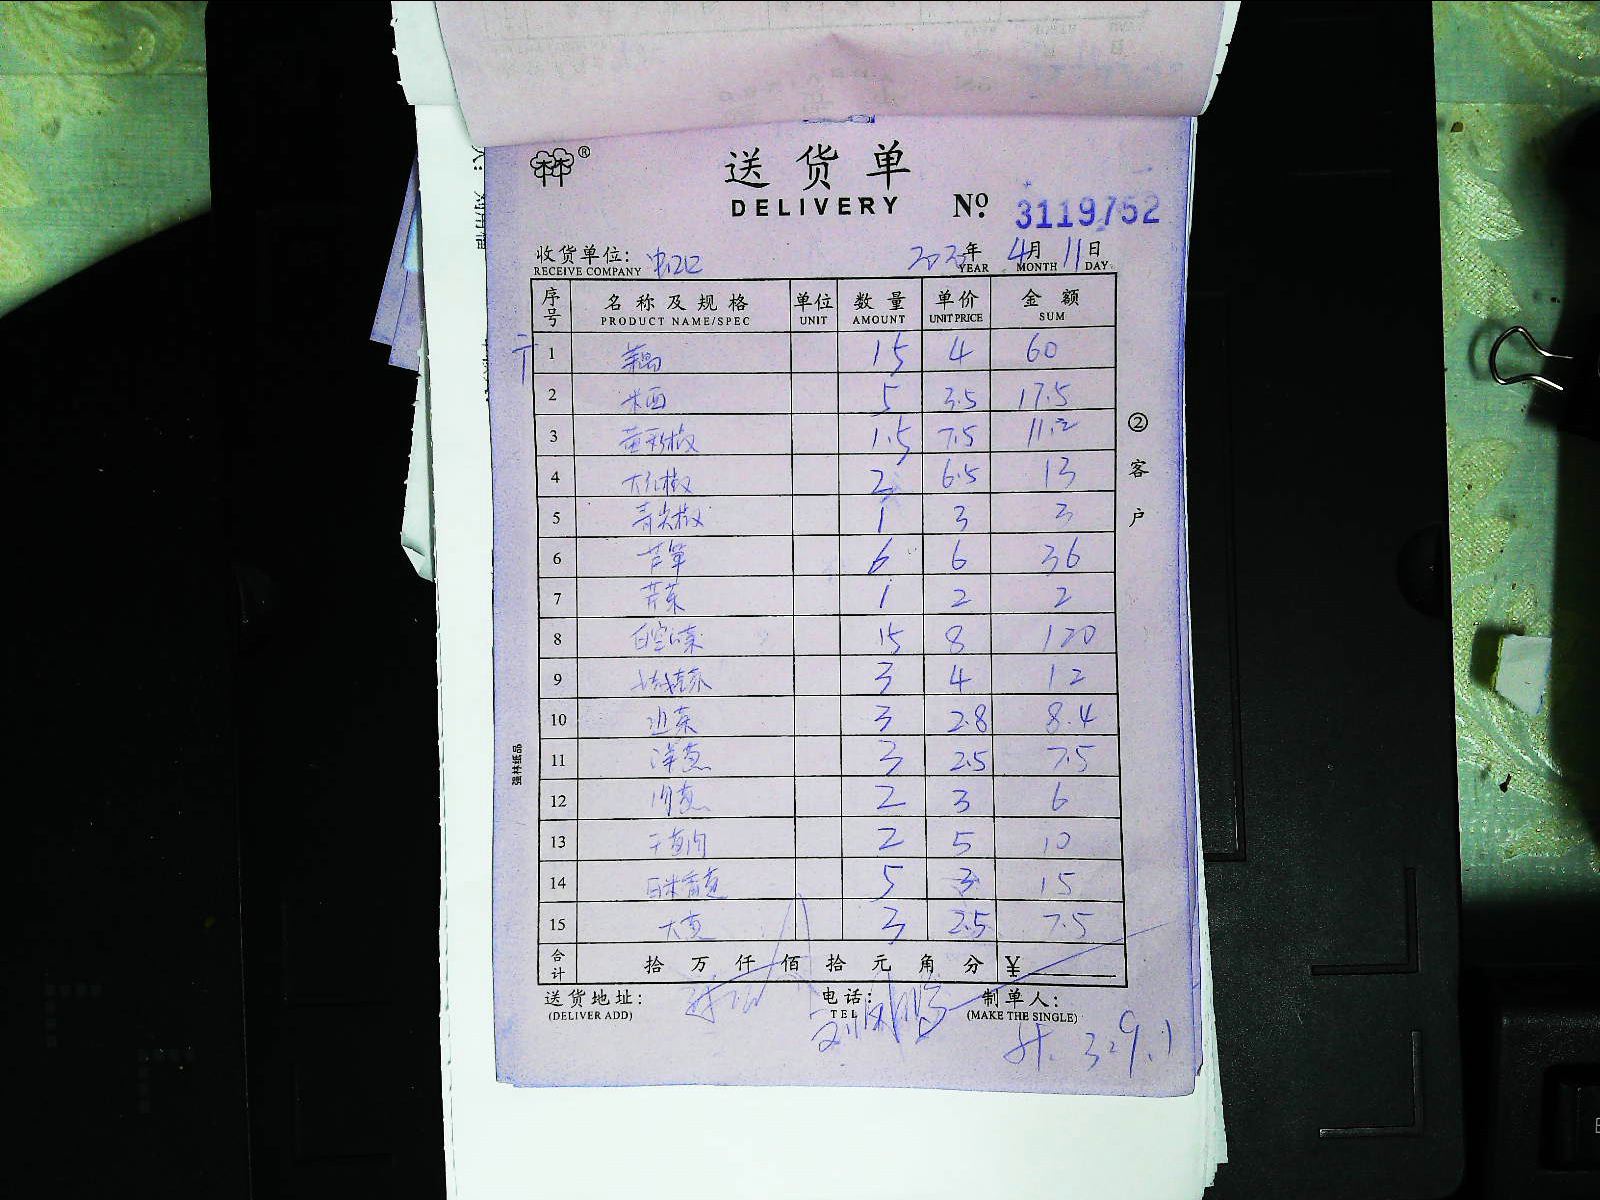 林®
送货单
DELIVERY No. 3119752
收货单位: 年 4月 11日
RECEIVE COMPANY YEAR MONTH DAY
序号 名称及规格 单位 数量 单价 金额
PRODUCT NAME/SPEC UNIT AMOUNT UNIT PRICE SUM
1 藕 15 4 60
2 5 3.5 17.5
3 黄彩椒 1.5 7.5 11.2
4 大红椒 2 6.5 13
5 青尖椒 1 3 3
6 芦笋 6 6 36
7 芹菜 1 2 2
8 15 8 120
9 3 4 12
10 3 2.8 8.4
11 洋葱 3 2.5 7.5
12 2 3 6
13 2 5 10
14 5 3 15
15 大葱 3 2.5 7.5
合计 拾 万 仟 佰 拾 元 角 分 ¥
送货地址: 电话: 制单人:
(DELIVER ADD) TEL (MAKE THE SINGLE)
329.1
②客户
强林纸品